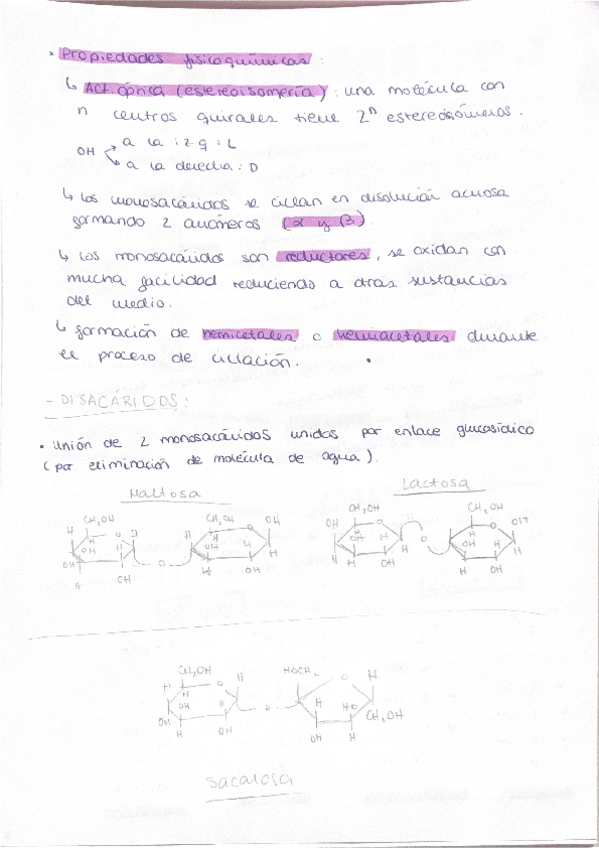 • Propiedades fisicoquímicas :
↳ Act. óptica (estereoisomería) : una molécula con
n centros quirales tiene 2ⁿ estereoisómeros.
OH → a la izq : L
→ a la derecha : D
↳ Los monosacáridos se ciclan en disolución acuosa
formando 2 anómeros (α y β).
↳ Los monosacáridos son reductores, se oxidan con
mucha facilidad reduciendo a otras sustancias
del medio.
↳ formación de hemicetales o hemiacetales durante
el proceso de ciclación.
- DISACÁRIDOS :
• Unión de 2 monosacáridos unidos por enlace glucosídico
(por eliminación de molécula de agua).
Maltosa Lactosa
CH₂OH CH₂OH OH CH₂OH CH₂OH
H O H H O OH O H O OH
OH H OH H H OH H H O OH H H
OH O H OH H OH H OH
H OH
CH₂OH H HOCH₂ O H
H O
H
OH H H HO CH₂OH
OH O
H OH OH H
Sacarosa